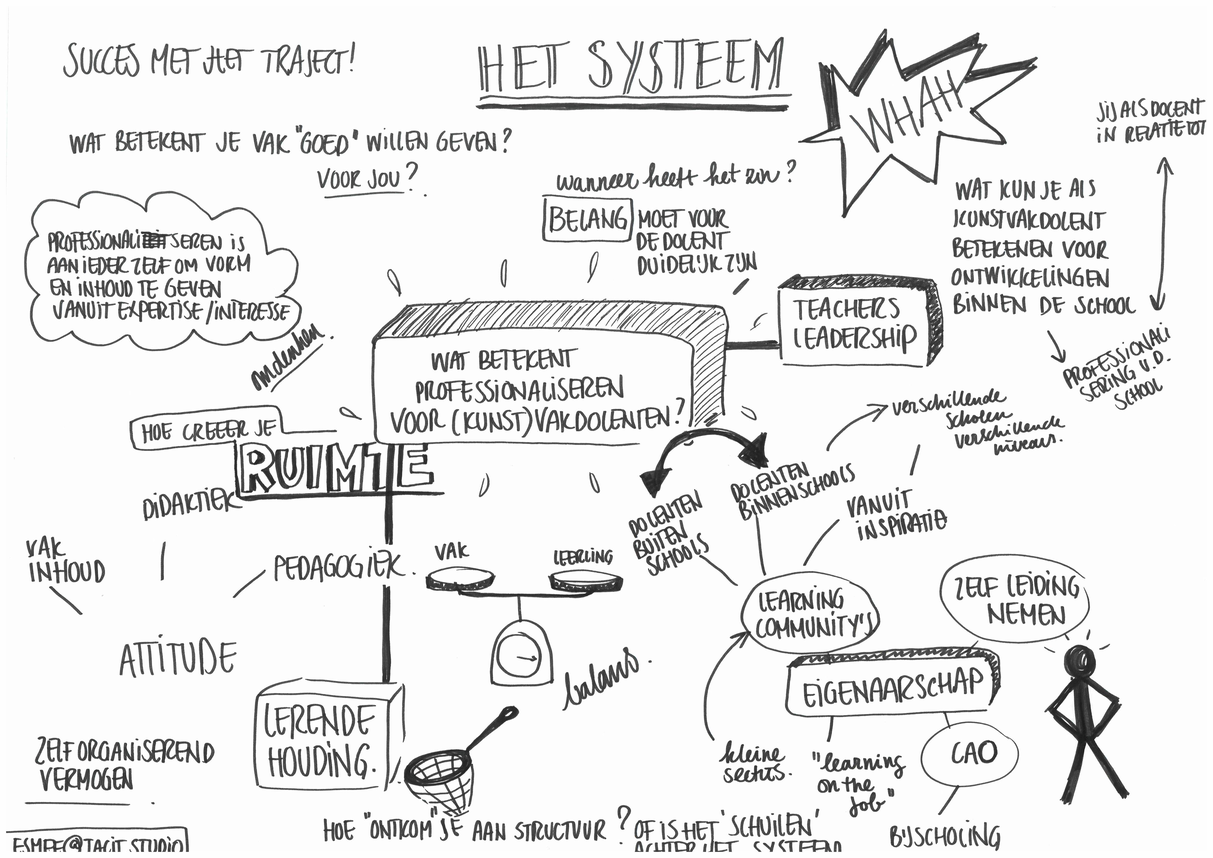 SUCCES MET HET TRAJECT!
HET SYSTEEM
WHAH
JIJ ALS DOCENT
IN RELATIE TOT
WAT BETEKENT JE VAK "GOED" WILLEN GEVEN?
VOOR JOU?
wanneer heeft het zin?
BELANG MOET VOOR
DE DOCENT
DUIDELIJK ZIJN
WAT KUN JE ALS
KUNSTVAKDOCENT
BETEKENEN VOOR
ONTWIKKELINGEN
BINNEN DE SCHOOL
PROFESSIONALI
SERING V.D.
SCHOOL
PROFESSIONALISEREN IS
AAN IEDER ZELF OM VORM
EN INHOUD TE GEVEN
VANUIT EXPERTISE/INTERESSE
omdenken.
TEACHERS
LEADERSHIP
WAT BETEKENT
PROFESSIONALISEREN
VOOR (KUNST)VAKDOCENTEN?
HOE CREEER JE
RUIMTE
DIDAKTIEK
VAK
INHOUD
PEDAGOGIEK.
ATTITUDE
VAK
LEERLING
balans.
DOCENTEN
BUITEN
SCHOOLS
DOCENTEN
BINNENSCHOOLS
verschillende
scholen
verschillende
niveaus.
VANUIT
INSPIRATIE
LEARNING
COMMUNITY'S
ZELF LEIDING
NEMEN
EIGENAARSCHAP
LERENDE
HOUDING.
ZELFORGANISEREND
VERMOGEN
kleine
"learning
on the
job"
CAO
BIJSCHOLING
HOE "ONTKOM" JE AAN STRUCTUUR? OF IS HET 'SCHUILEN'
ACHTER HET SYSTEEM
ESMEE@TACIT.STUDIO